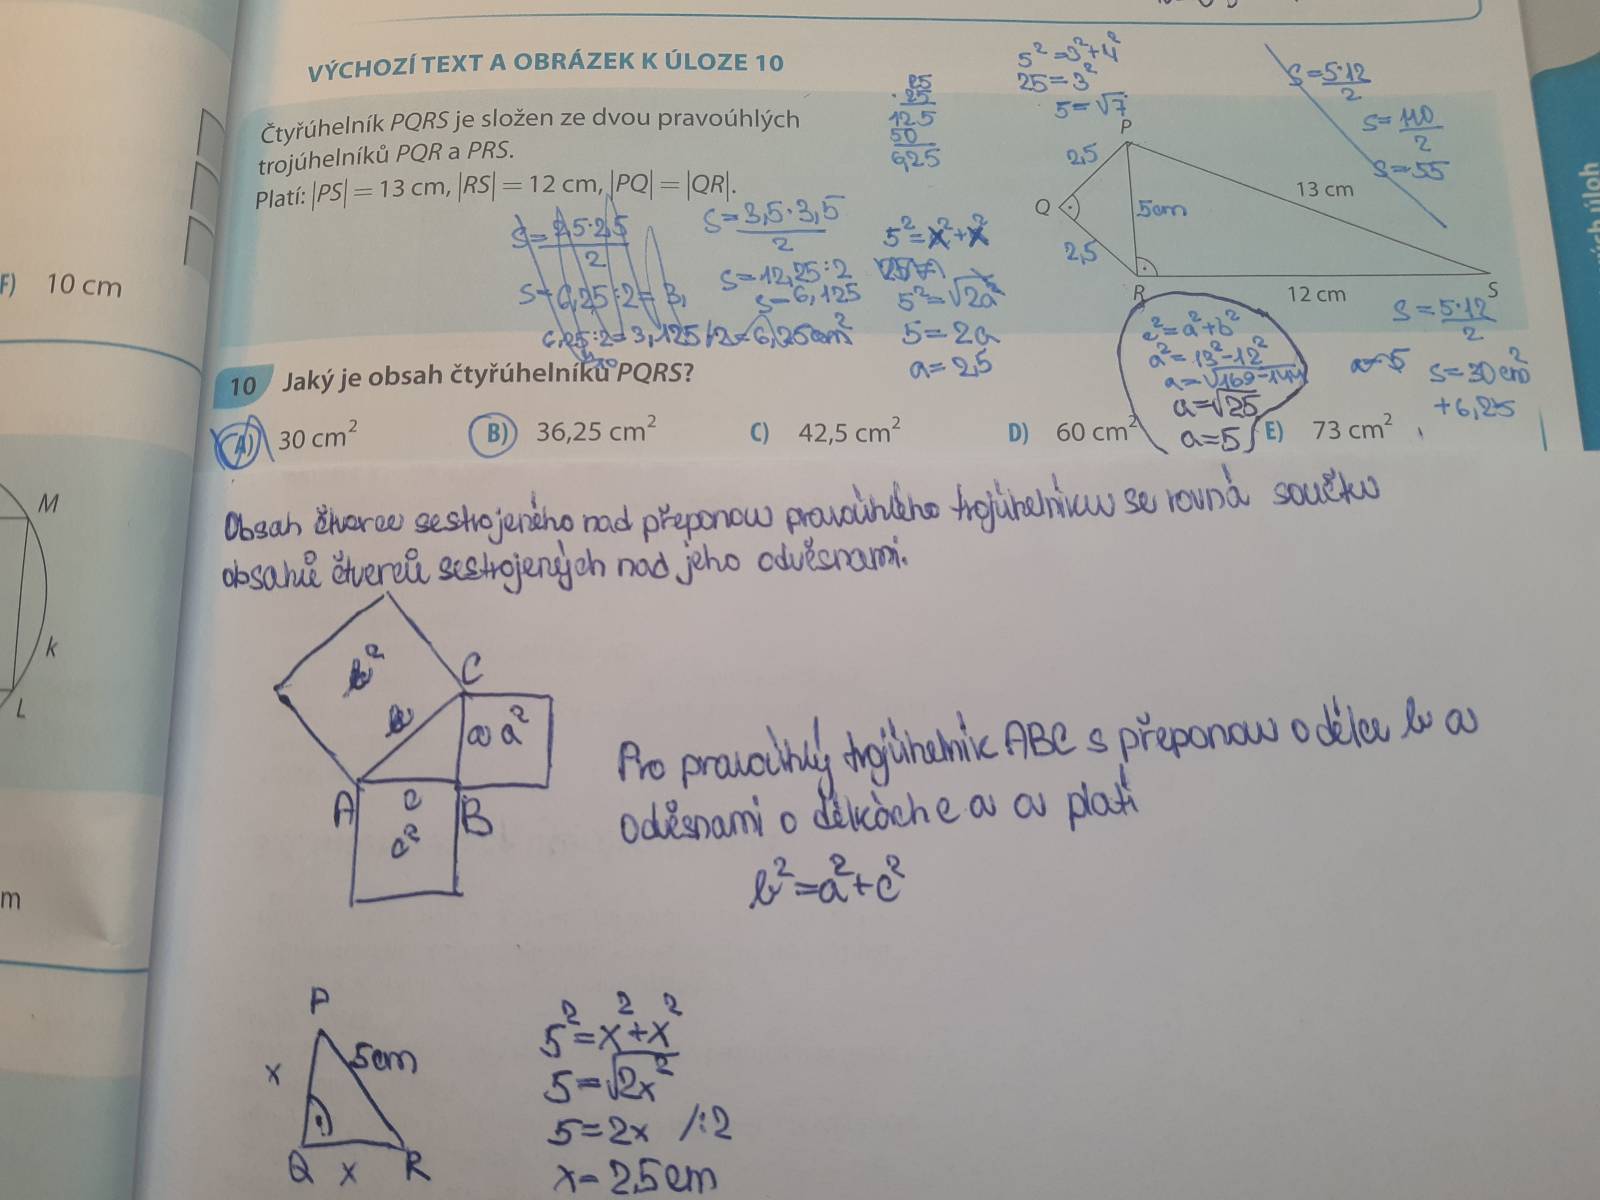 VÝCHOZÍ TEXT A OBRÁZEK K ÚLOZE 10
Čtyřúhelník PQRS je složen ze dvou pravoúhlých
trojúhelníků PQR a PRS.
Platí: |PS| = 13 cm, |RS| = 12 cm, |PQ| = |QR|.
25
·25
125
50
625
5²=3²+4²
25=3²
5=√7
S=5·12/2
S=110/2
S=55
P
2,5
Q
5cm
13 cm
2,5
R
12 cm
S
S=2,5·2,5/2
S=6,25:2=3,
6,25:2=3,125/·2=6,25cm²
S=3,5·3,5/2
S=12,25:2
S=6,125
5²=x²+x²
5²=√2a²
5=2a
a=2,5
c²=a²+b²
a²=13²-12²
a=√169-144
a=√25
a=5
a=5
S=5·12/2
S=30cm²
+6,25
F) 10 cm
10 Jaký je obsah čtyřúhelníku PQRS?
A) 30 cm²
B) 36,25 cm²
C) 42,5 cm²
D) 60 cm²
E) 73 cm²
ých úloh
M
k
L
m
Obsah čtverce sestrojeného nad přeponou pravoúhlého trojúhelníku se rovná součtu
obsahů čtverců sestrojených nad jeho odvěsnami.
b²
b
C
a a²
A
c
B
c²
Pro pravoúhlý trojúhelník ABC s přeponou o délce b a
odvěsnami o délkách c a a platí
b²=a²+c²
P
x
5cm
Q
x
R
5²=x²+x²
5=√2x²
5=2x /:2
x=2,5cm